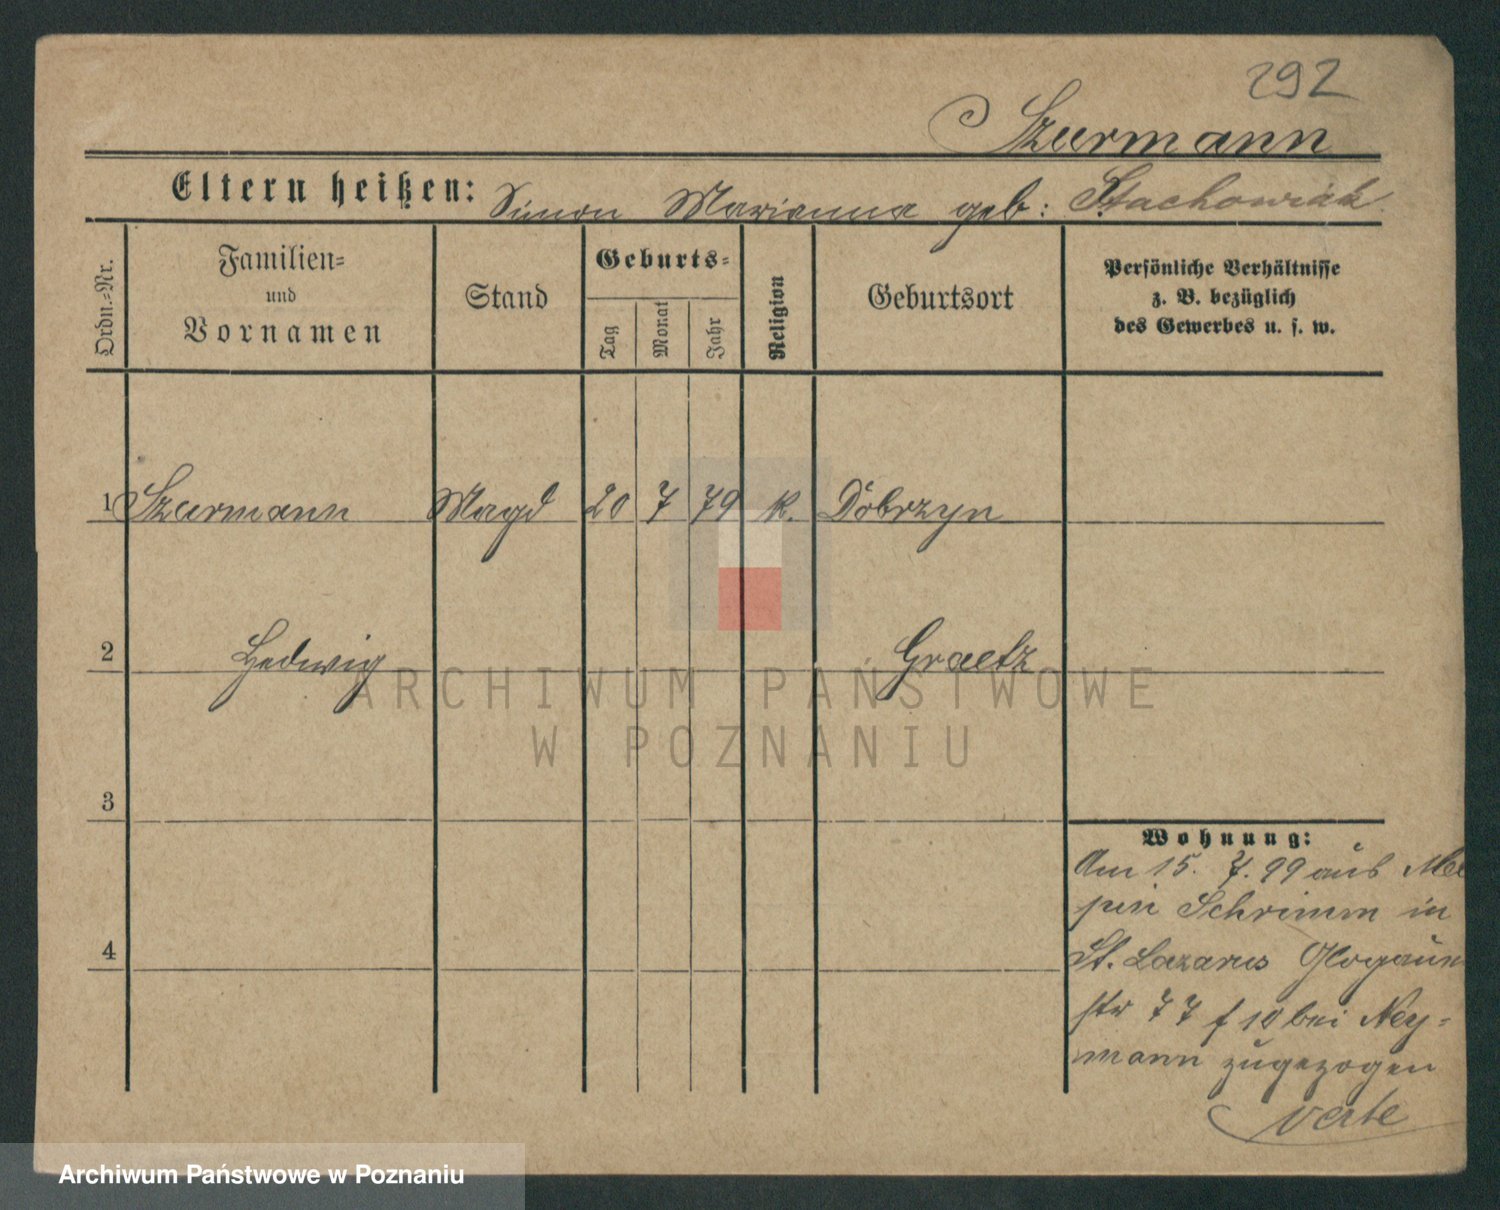 292
Szurmann
Eltern heißen: Simon Marianna geb: Stachowiak
Ordn.-Nr.
Familien-
und
Vornamen
Stand
Geburts-
Tag
Monat
Jahr
Religion
Geburtsort
Persönliche Verhältnisse
z. B. bezüglich
des Gewerbes u. s. w.
1 Szurmann Magd 20 7 79 k. Dobrzyn
2 Hedwig Graetz
3
4
Wohnung:
Am 15. 7. 99 aus
pin Schrimm in
St. Lazarus
str 77 f 10 bei Ney-
mann zugezogen
verte
ARCHIWUM PAŃSTWOWE
W POZNANIU
Archiwum Państwowe w Poznaniu